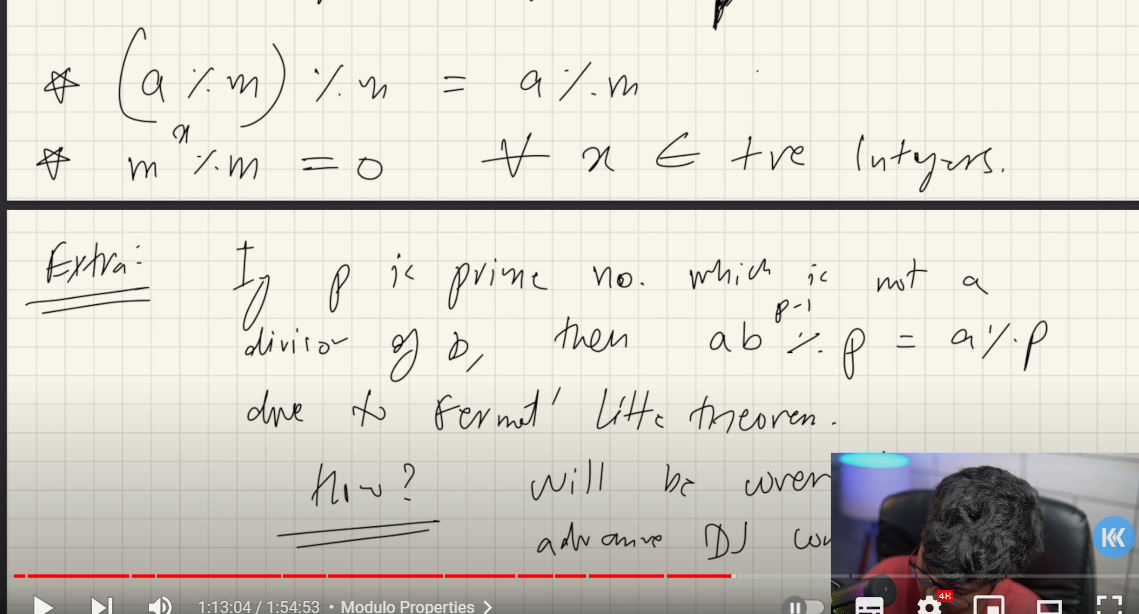 (a % m) % m = a % m
m^x % m = 0 ∀ x ∈ +ve Integers.
Extra: If p is prime no. which is not a
divisor of b, then ab^p-1 % p = a % p
due to Fermat' little theorem.
How? will be
advance DJ
1:13:04 / 1:54:53 • Modulo Properties >
4K